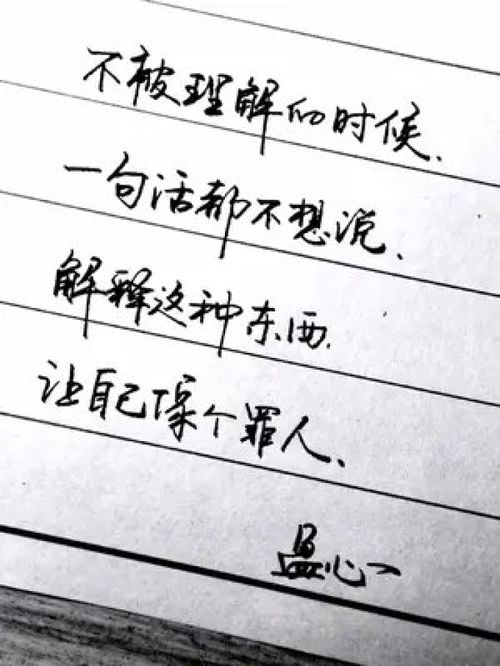 不被理解的时候、
一句话都不想说、
解释这种东西、
让自己像个罪人、
盈心一